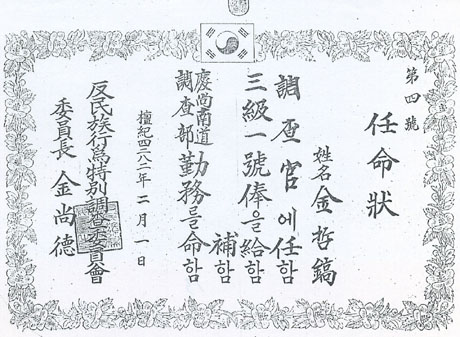 第四號
任命狀
姓名 金哲鎬
調查官에任함
三級一號俸을給함
補함
慶尙南道
調查部勤務를命함
檀紀四二八二年 二月 一日
反民族行爲特別調查委員會
委員長 金尙德